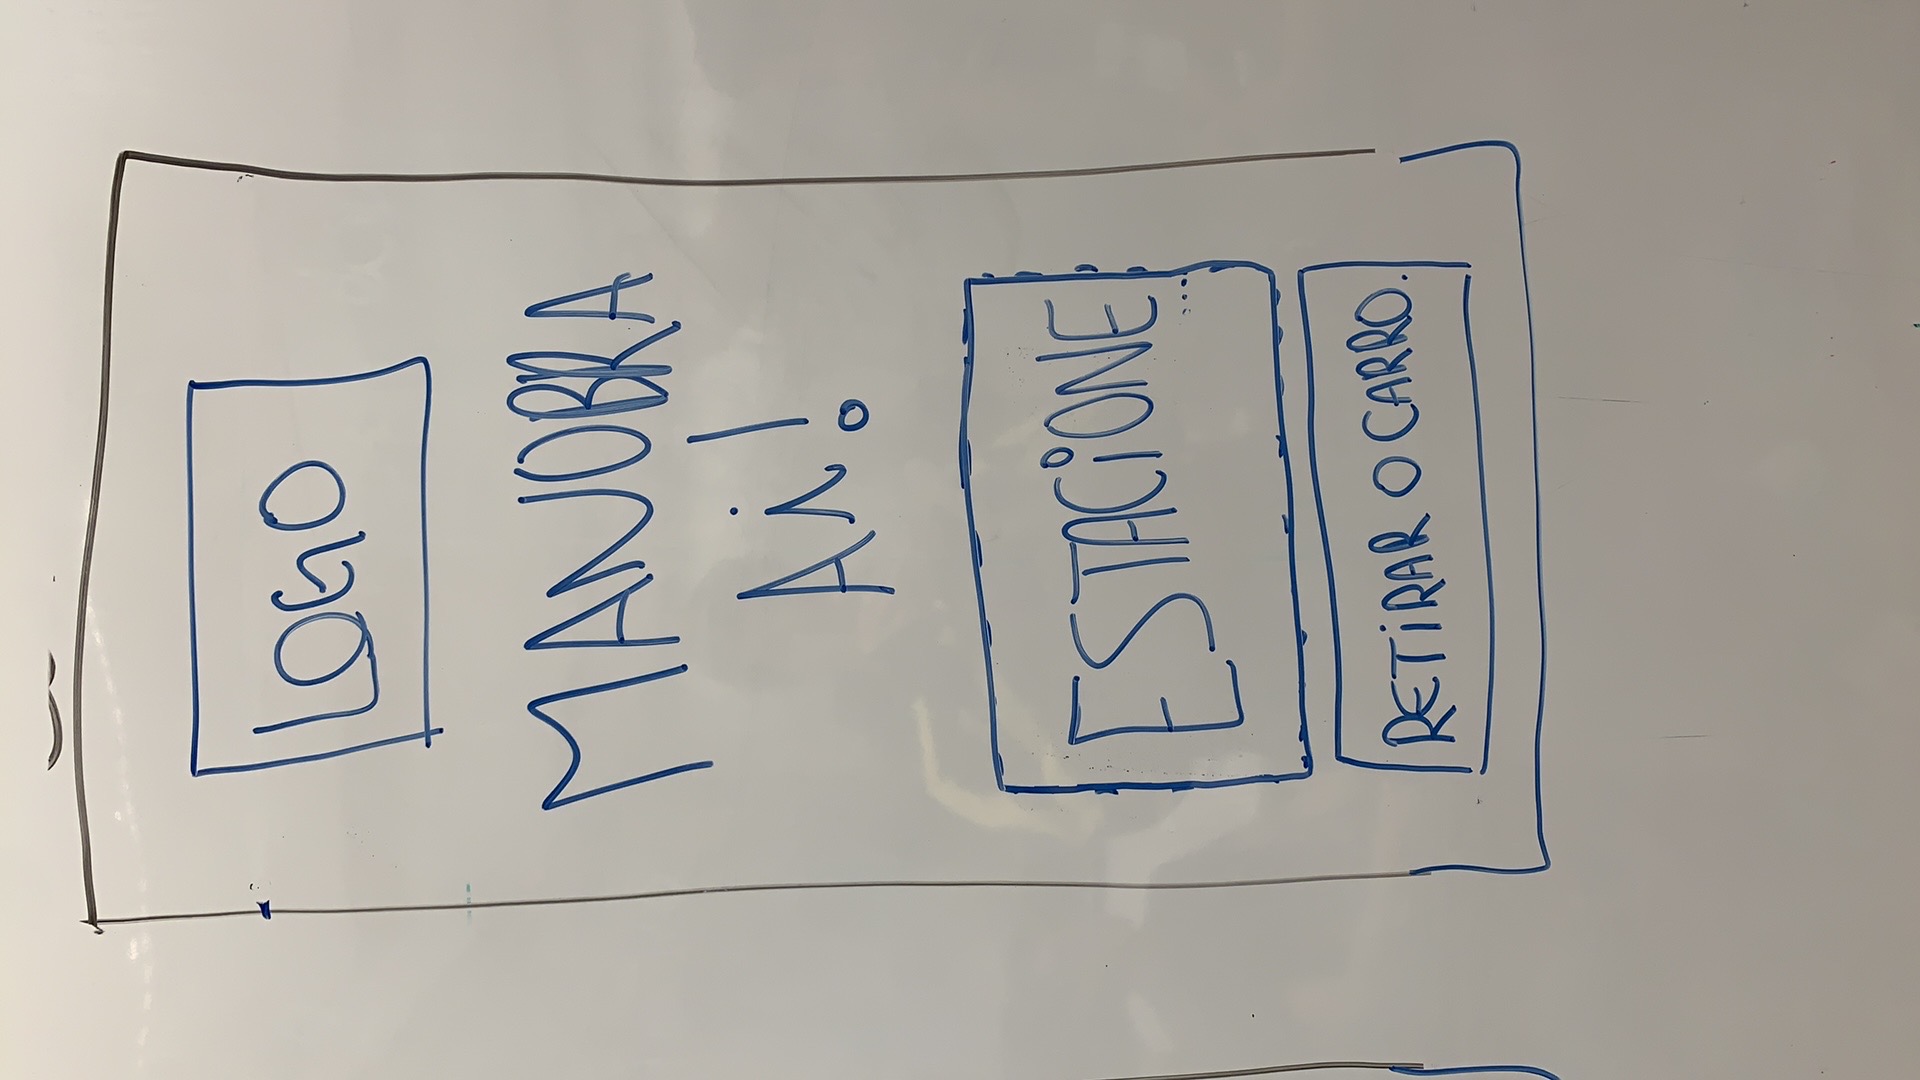 LOGO
MANOBRA
Ai!
ESTACiONE
...
RETiRAR O CARRO.